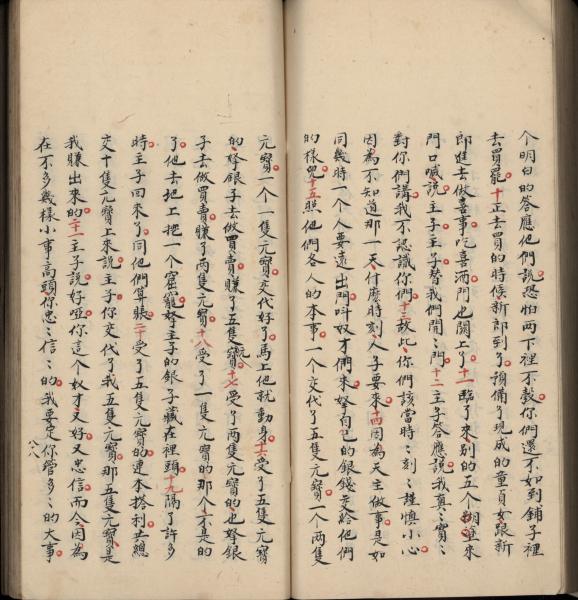 個明白的答應他們說恐怕兩下裡不彀你們還不如到鋪子裡
去買罷十正去買的時候新郎到了預備了現成的童貞女跟新
郎進去做喜事吃喜酒門也關上了十一臨了來別的五個糊塗來
門口喊說主子主子替我們開〻門十二主子答應說我真〻實〻
對你們講我不認識你們十三故此你們該當時〻刻〻謹慎小心
因為不知道那一天什麼時刻人子要來十四因為天主做事是如
同幾時一个人要遠出門呌奴才們來拏自己的銀錢交給他們
的樣兒十五照他們各人的本事一个交代了五隻元寶一个兩隻
元寶一个一隻元寶交代好了馬上他就動身十六受了五隻元寶
的拏銀子去做買賣賺了五隻元寶十七受了兩隻元寶的也拏銀
子去做買賣賺了兩隻元寶十八受了一隻元寶的那个不是的
了他去地上挖一个窟窿拏主子的銀子藏在裡頭十九隔了許多
時主子回來了同他們算賬二十受了五隻元寶的連本搭利共總
交十隻元寶上來說主子你交代了我五隻元寶那五隻元寶是
我賺出來的二一主子說好哑你這个奴才又好又忠信而今因為
在不多幾樣小事高頭你忠〻信〻的我要定你管多〻的大事
八八